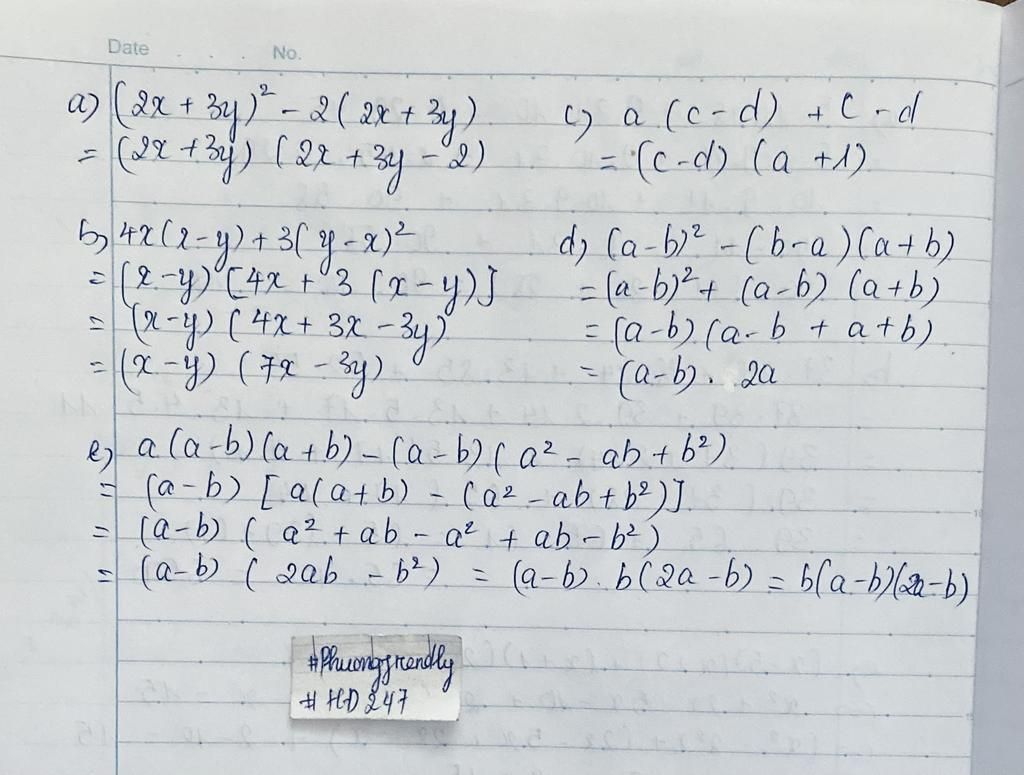 Date . . . No.
a) (2x + 3y)² - 2(2x + 3y)
= (2x + 3y) (2x + 3y - 2)
c) a (c - d) + c - d
= (c-d) (a + 1)
b) 4x(x-y) + 3(y-x)²
= (x-y) [4x + 3 (x-y)]
= (x-y) (4x + 3x - 3y)
= (x-y) (7x - 3y)
d) (a-b)² - (b-a)(a+b)
= (a-b)² + (a-b) (a+b)
= (a-b) (a-b + a+b)
= (a-b) . 2a
e) a(a-b)(a+b) - (a-b)(a² - ab + b²)
= (a-b) [a(a+b) - (a² - ab + b²)]
= (a-b) (a² + ab - a² + ab - b²)
= (a-b) (2ab - b²) = (a-b) . b(2a-b) = b(a-b)(2a-b)
#Phuongfriendly
#HD247